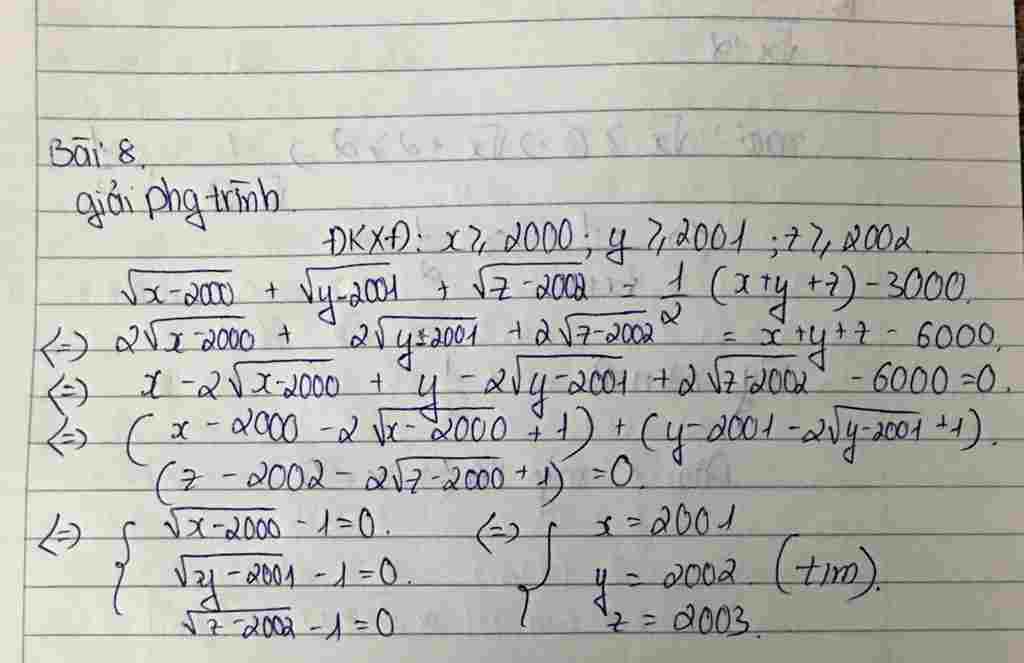 Bài 8.
giải phg trình
ĐKXĐ: x ≥ 2000; y ≥ 2001; z ≥ 2002.
√(x-2000) + √(y-2001) + √(z-2002) = 1/2 (x+y+z) - 3000.
<=> 2√(x-2000) + 2√(y-2001) + 2√(z-2002) = x+y+z - 6000.
<=> x - 2√(x-2000) + y - 2√(y-2001) + 2√(z-2002) - 6000 = 0.
<=> (x - 2000 - 2√(x-2000) + 1) + (y-2001-2√(y-2001)+1).
(z - 2002 - 2√(z-2000) + 1) = 0.
<=> { √(x-2000) - 1 = 0. <=> { x = 2001
√(y-2001) - 1 = 0. y = 2002 (tm).
√(z-2002) - 1 = 0 z = 2003.